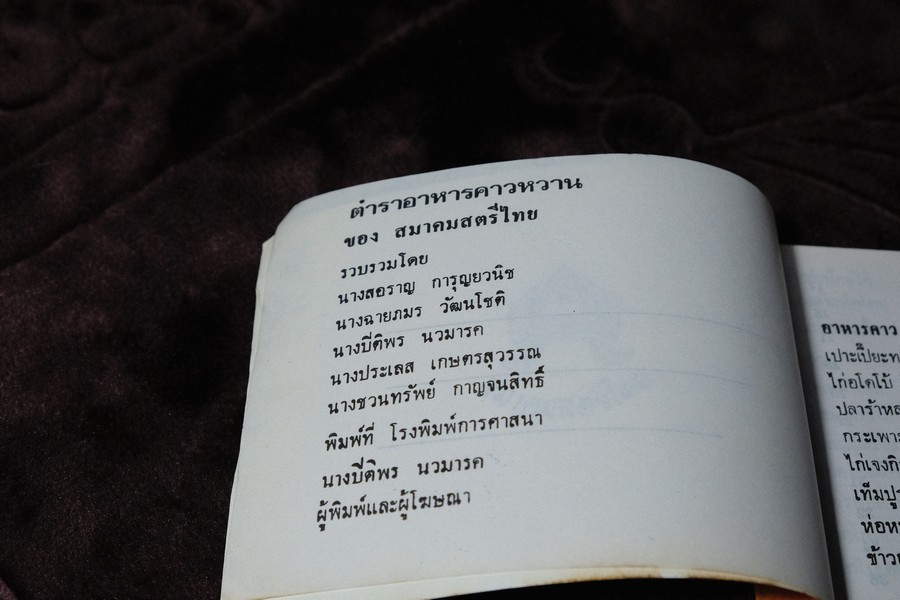 ตำราอาหารคาวหวาน
ของ สมาคมสตรีไทย
รวบรวมโดย
นางสอราญ การุญยวนิช
นางฉายภมร วัฒนโชติ
นางปีติพร นวมารค
นางประเลส เกษตรสุวรรณ
นางชวนทรัพย์ กาญจนสิทธิ์
พิมพ์ที่ โรงพิมพ์การศาสนา
นางปีติพร นวมารค
ผู้พิมพ์และผู้โฆษณา
อาหารคาว
เปาะเปี๊ยะท
ไก่อโดโบ้
ปลาร้าหล
กระเพาะ
ไก่เจงกิ
เท็มปูร
ห่อห
ข้าว